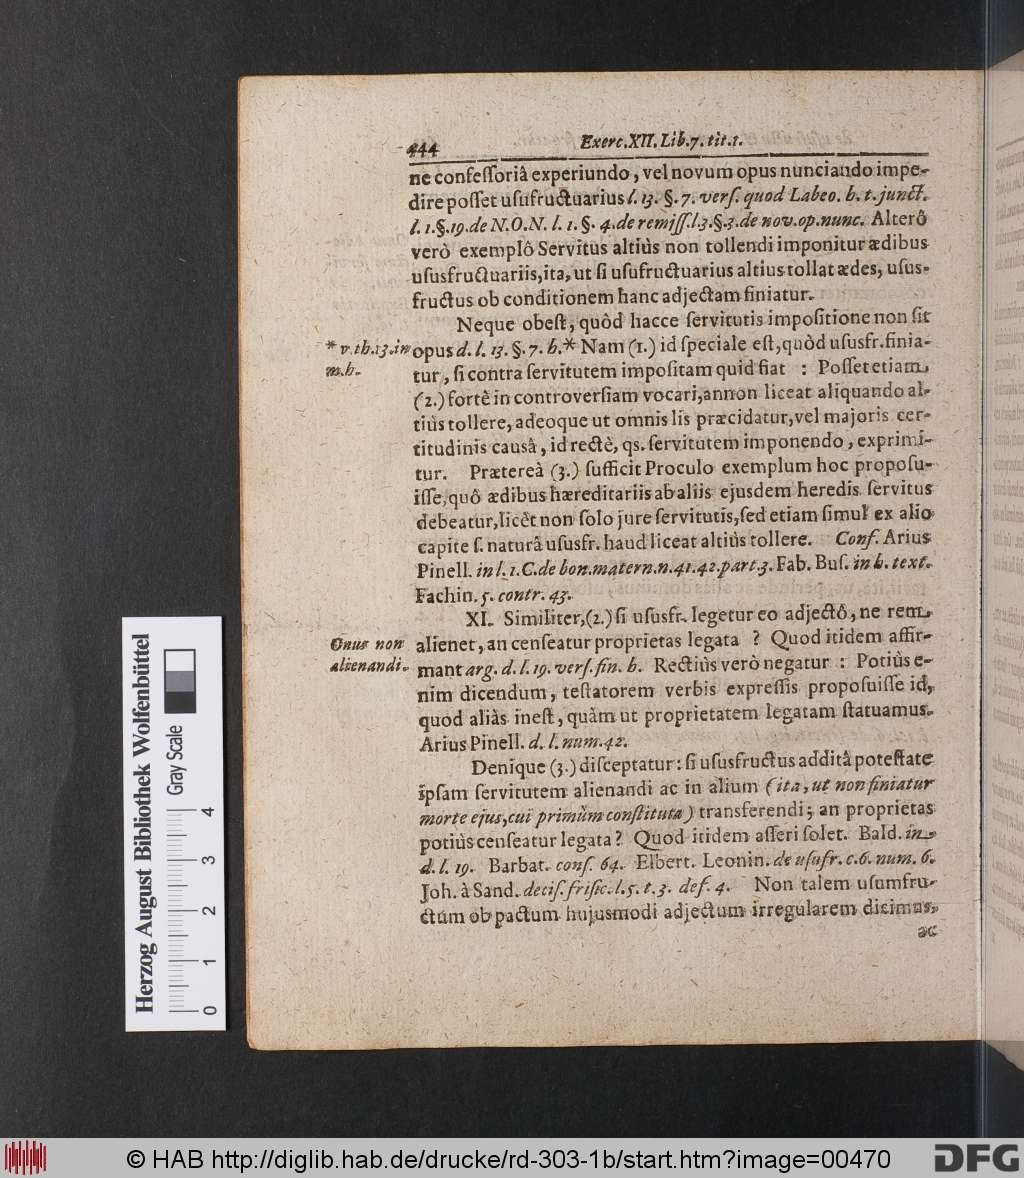 444 Exerc. XII. Lib. 7. tit. 1.
ne confessoriâ experiundo, vel novum opus nunciando impe-
dire posset usufructuarius l. 13. §. 7. vers. quod Labeo. h. t. junct.
l. 1. §. 19. de N. O. N. l. 1. §. 4. de remiss. l. 3. §. 3. de nov. op. nunc. Alterô
verò exemplô Servitus altiùs non tollendi imponitur ædibus
ususfructuariis, ita, ut si usufructuarius altius tollat ædes, usus-
fructus ob conditionem hanc adjectam finiatur.
Neque obest, quòd hacce servitutis impositione non sit
* v. th. 13. in
m. h.
opus d. l. 13. §. 7. h. * Nam (1.) id speciale est, quòd ususfr. finia-
tur, si contra servitutem impositam quid fiat : Posset etiam
(2.) fortè in controversiam vocari, annon liceat aliquando al-
tiùs tollere, adeoque ut omnis lis præcidatur, vel majoris cer-
titudinis causâ, id rectè, qs. servitutem imponendo, exprimi-
tur. Prætereà (3.) sufficit Proculo exemplum hoc proposu-
isse, quô ædibus hæreditariis ab aliis ejusdem heredis servitus
debeatur, licèt non solo jure servitutis, sed etiam simul ex alio
capite s. naturâ ususfr. haud liceat altiùs tollere. Conf. Arius
Pinell. in l. 1. C. de bon. matern. n. 41. 42. part. 3. Fab. Bus. in h. text.
Fachin. 5. contr. 43.
XI. Similiter, (2.) si ususfr. legetur eo adjectô, ne rem
Onus non
alienandi.
alienet, an censeatur proprietas legata ? Quod itidem affir-
mant arg. d. l. 19. vers. fin. h. Rectiùs verò negatur : Potiùs e-
nim dicendum, testatorem verbis expressis proposuisse id,
quod aliàs inest, quàm ut proprietatem legatam statuamus.
Arius Pinell. d. l. num. 42.
Denique (3.) disceptatur: si ususfructus additâ potestate
ipsam servitutem alienandi ac in alium (ita, ut non finiatur
morte ejus, cui primùm constituta) transferendi; an proprietas
potiùs censeatur legata? Quod itidem asseri solet. Bald. in
d. l. 19. Barbat. cons. 64. Elbert. Leonin. de usufr. c. 6. num. 6.
Joh. à Sand. decis. frisic. l. 5. t. 3. def. 4. Non talem usumfru-
ctum ob pactum hujusmodi adjectum irregularem dicimus,
ac
Herzog August Bibliothek Wolfenbüttel
Gray Scale
0 1 2 3 4
© HAB http://diglib.hab.de/drucke/rd-303-1b/start.htm?image=00470
DFG